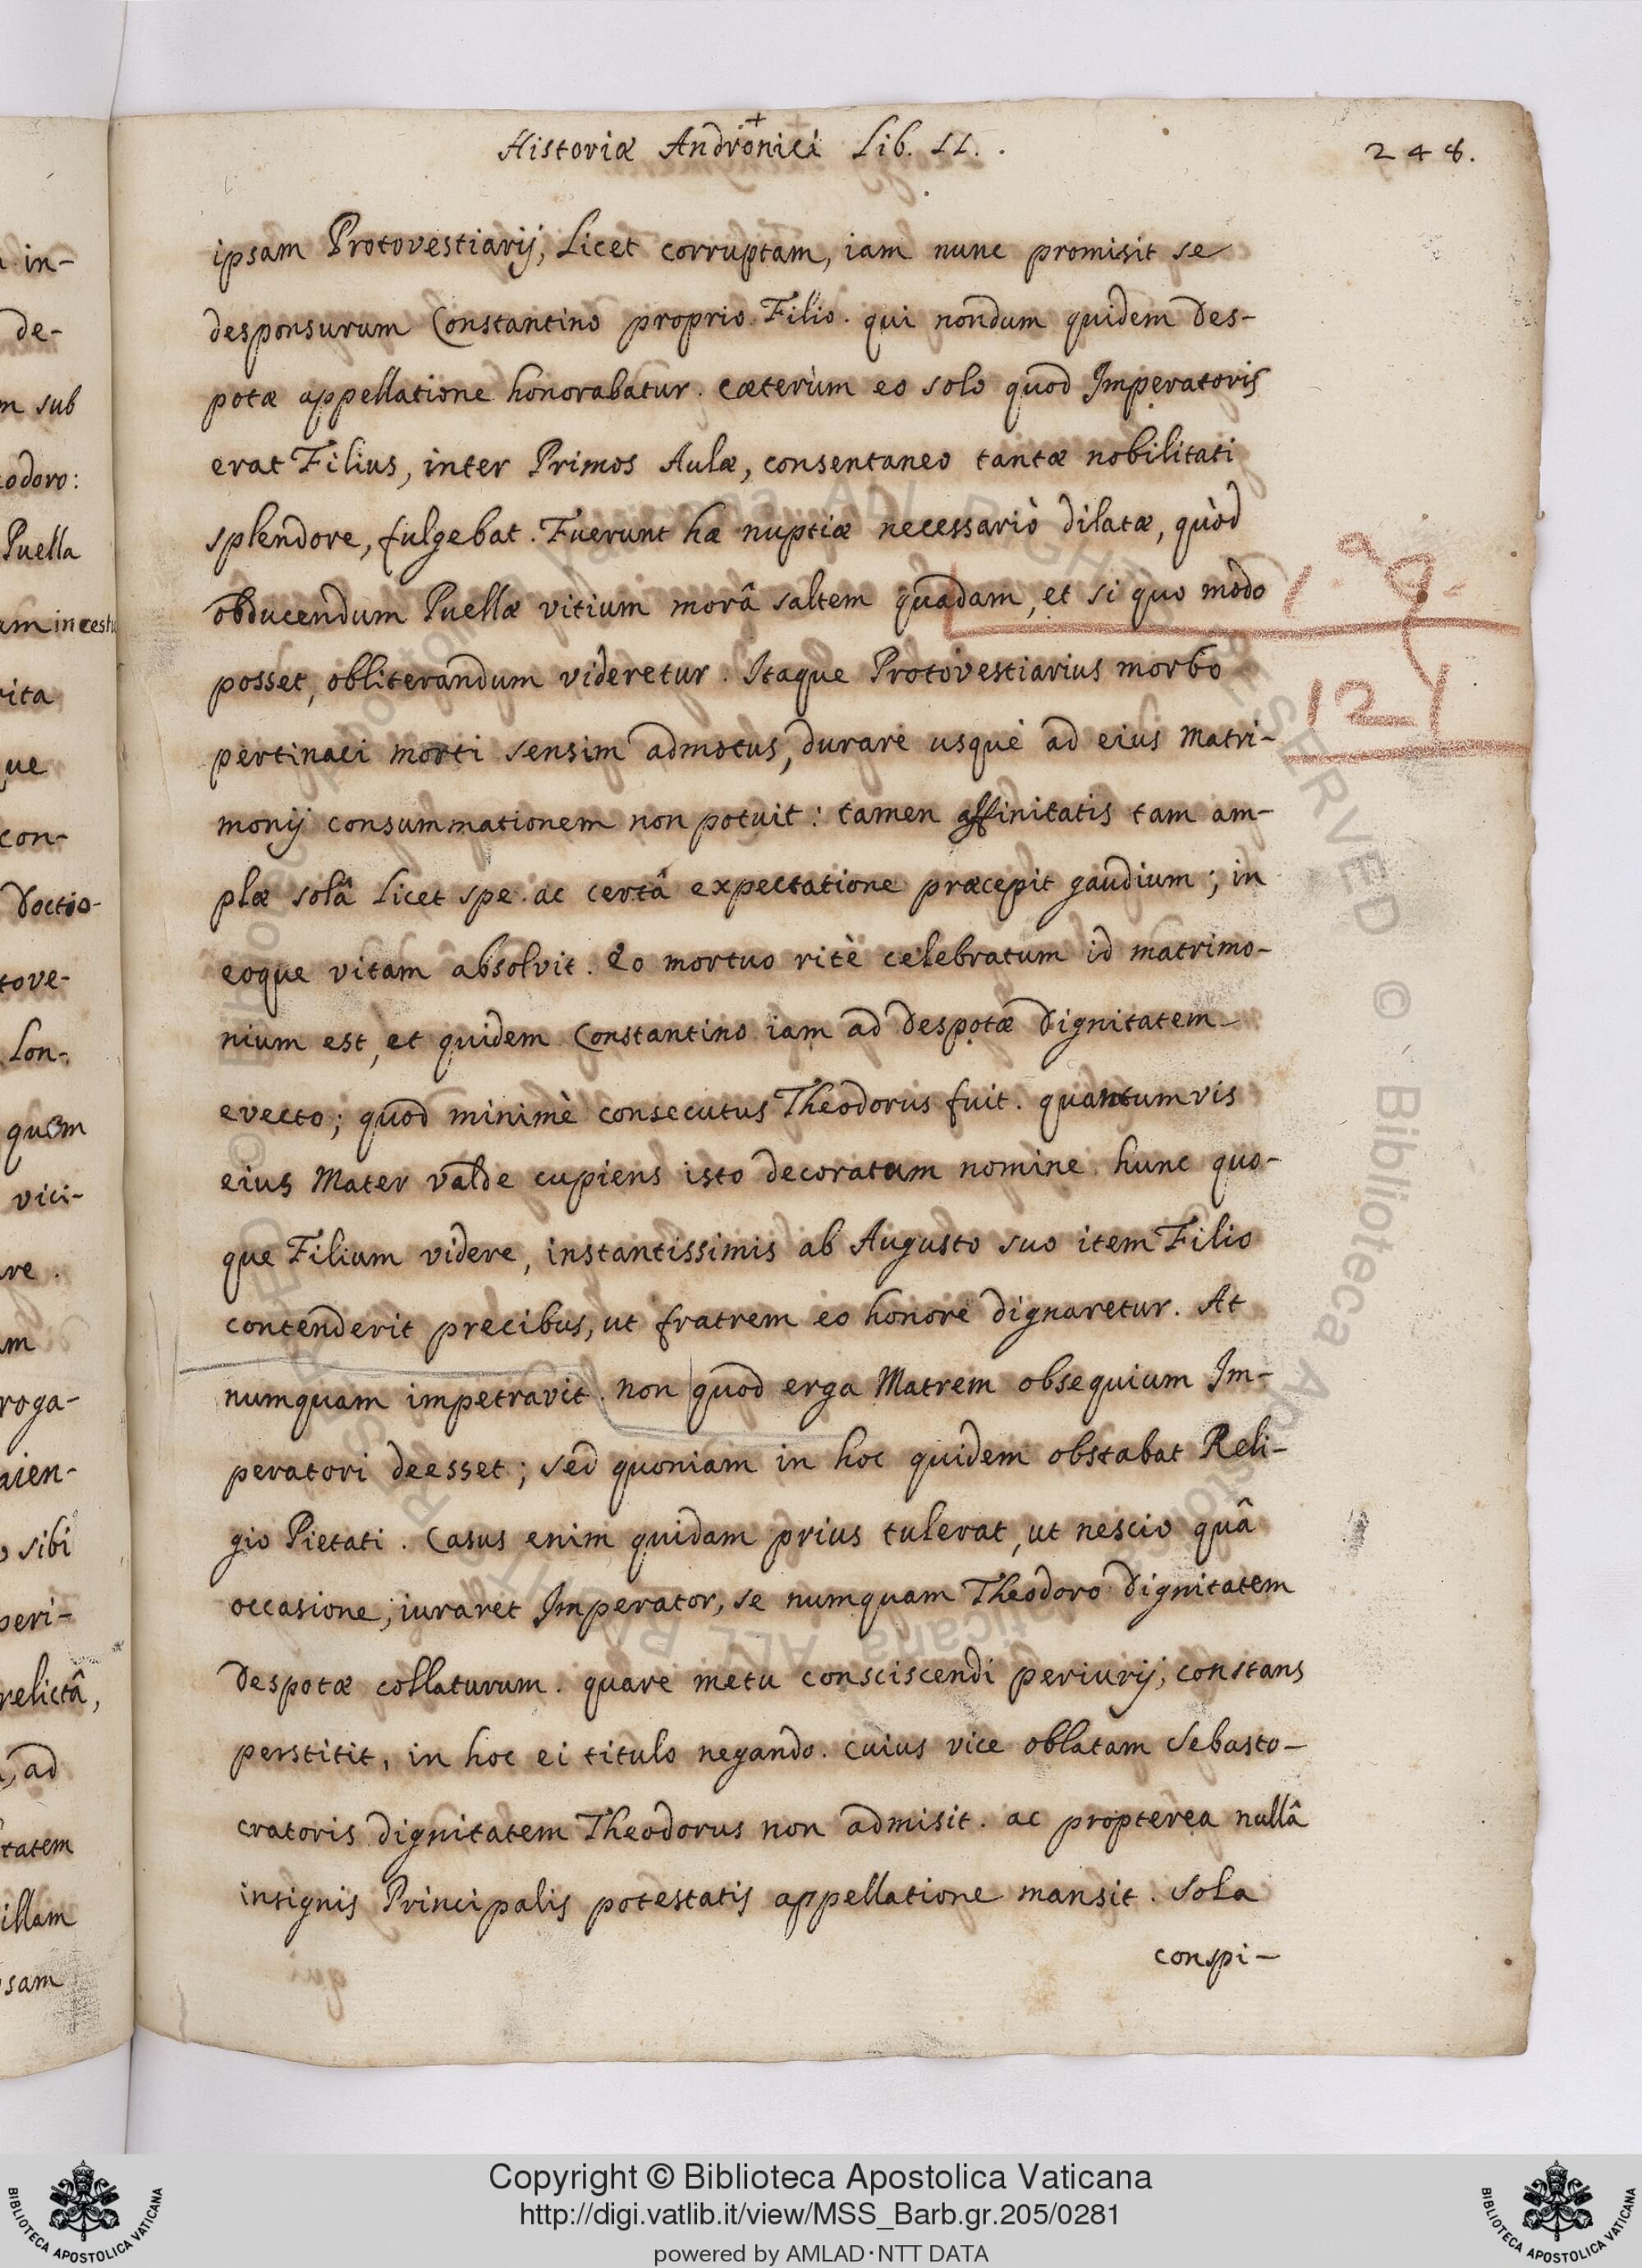 Historiæ Andronici Lib. II. .
248.
ipsam Protovestiarij, Licet corruptam, iam nunc promisit se
desponsurum Constantino proprio Filio. qui nondum quidem Des-
potæ appellatione honorabatur. cæterùm eo solo quod Imperatoris
erat Filius, inter Primos Aulæ, consentaneo tantæ nobilitati
splendore, fulgebat. Fuerunt hæ nuptiæ necessariò dilatæ, quòd
obducendum Puellæ vitium morâ saltem quadam, et si quo modo
posset, obliterandum videretur. Itaque Protovestiarius morbo
pertinaci morti sensim admotus, durare usque ad eius Matri-
121
monij consummationem non potuit: tamen affinitatis tam am-
plæ solâ Licet spe ac certâ expectatione præcepit gaudium; in
eoque vitam absolvit. Eo mortuo ritè celebratum id matrimo-
nium est, et quidem Constantino iam ad Despotæ Dignitatem
evecto; quod minimè consecutus Theodorus fuit. quantumvis
eius Mater valde cupiens isto decoratum nomine hunc quo-
que Filium videre, instantissimis ab Augusto suo item Filio
contenderit precibus, ut fratrem eo honore dignaretur. At
numquam impetravit. non quod erga Matrem obsequium Im-
peratori deesset; sed quoniam in hoc quidem obstabat Reli-
gio Pietati. Casus enim quidam prius tulerat, ut nescio quâ
occasione, iuraret Imperator, se numquam Theodoro Dignitatem
Despotæ collaturum. quare metu consciscendi periurij, constans
perstitit, in hoc ei titulo negando. cuius vice oblatam Sebasto-
cratoris dignitatem Theodorus non admisit. ac propterea nullâ
insignis Principalis potestatis appellatione mansit. Sola
conspi-
in-
de-
sub
odoro:
Puella
incestu
rita
ue
con-
Doctio-
tove-
Lon-
quem
vici-
re.
m
roga-
aien-
sibi
peri-
relictâ,
ad
tatem
illam
sam
© Biblioteca Apostolica Vaticana ALL RIGHTS RESERVED
Copyright © Biblioteca Apostolica Vaticana
http://digi.vatlib.it/view/MSS_Barb.gr.205/0281
powered by AMLAD·NTT DATA
BIBLIOTECA APOSTOLICA VATICANA
BIBLIOTECA APOSTOLICA VATICANA